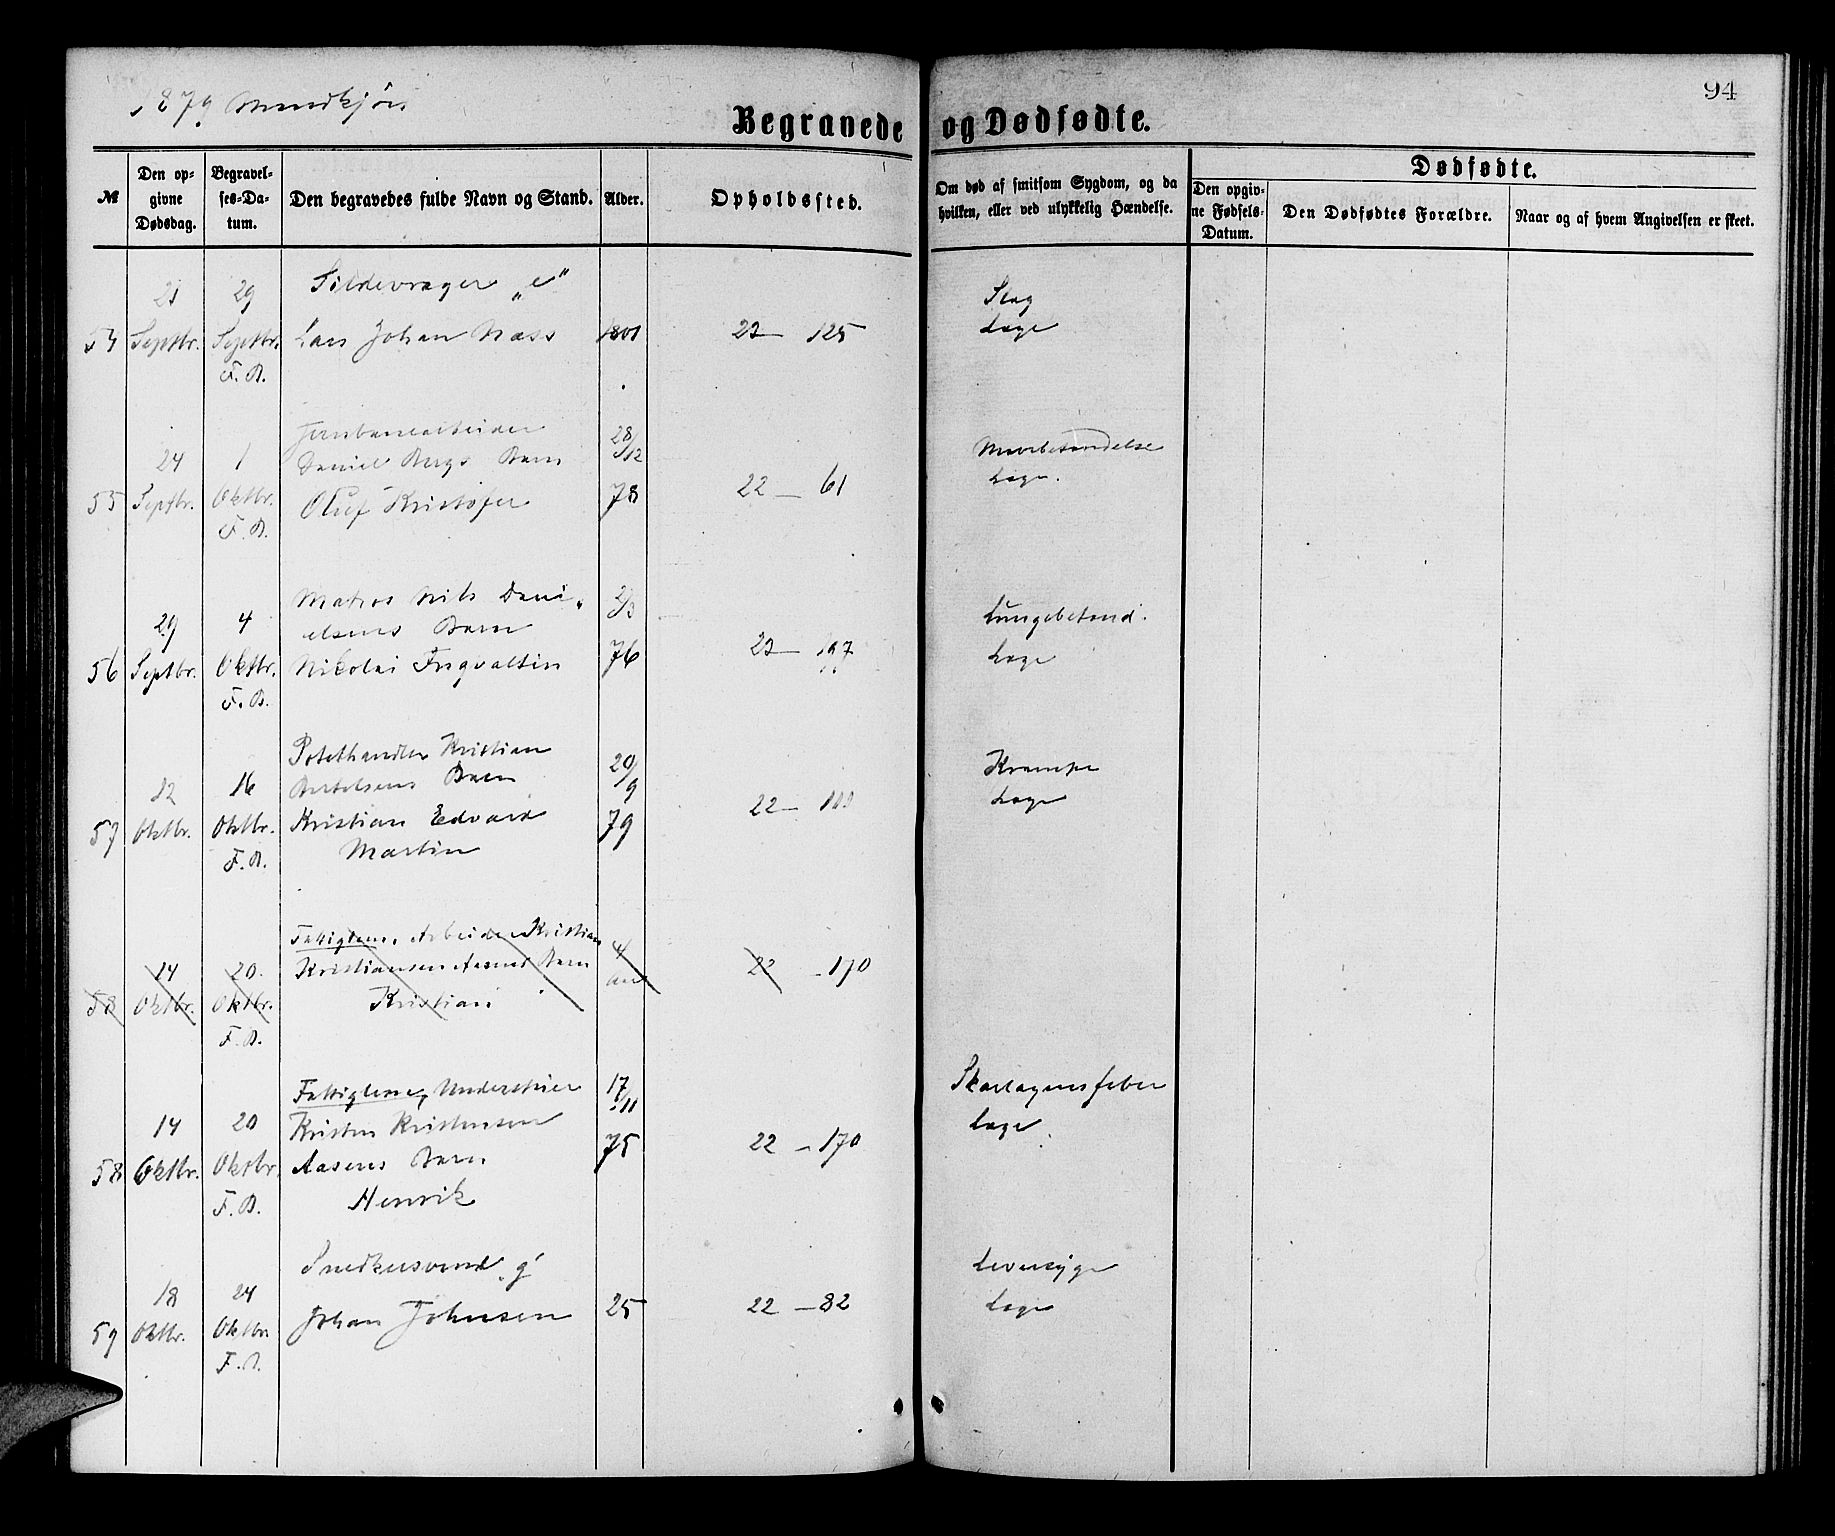 1879 Mandkjøn
94
Begravede og Dødfødte.
№
Den opgivne Dødsdag.
Begravelses-Datum.
Den begravedes fulde Navn og Stand.
Alder.
Opholdssted.
Om død af smitsom Sygdom, og da hvilken, eller ved ulykkelig Hændelse.
Dødfødte.
Den opgivne Fødsels-Datum.
Den Dødfødtes Forældre.
Naar og af hvem Angivelsen er skeet.
21 29 Sildevrager „e" Slag
54 Septbr. Septbr. Lars Johan Næss 1801 22 — 125 Læge
F. B.
Jernbanearbeider 28/12
24 1 Daniel Bergs Barn
55 Septbr. Oktbr. Oluf Kristofer 78 22 — 61 Læge.
F. B.
Matros Nils Dani- 2/3 Lungebetænd.
29 4 elsens Barn
56 Septbr. Oktbr. Nikolai Ingvaltin 76 22 — 197 Læge
F. B.
Potethandler Kristian 20/9 Krampe
12 16 Bertelsens Barn Læge
57 Oktbr. Oktbr. Kristian Edvard 79 22 —
F. B. Martin
Fattiglem, Arbeider Kristian 4
14 20 Kristiansen Aasens Barn aar 22 — 170
58 Oktbr. Oktbr. Kristian
F. B.
Fattiglem, Underofficier 17/11 Skarlagensfeber
14 20 Kristen Kristensen Læge
58 Oktbr. Oktbr. Aasens Barn 75 22 — 170
F. B. Henrik
Snedkersvend „g" Leversyge
18 24 Læge
59 Oktbr. Oktbr. Johan Johnsen 25 22 — 82
F. B.